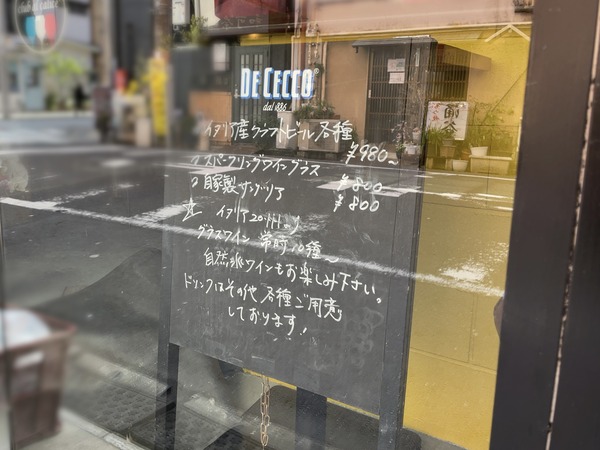 DE CECCO
dal 1886
イタリア産クラフトビール各種
¥980~
スパークリングワイングラス
¥800
自家製サングリア
¥800
☆ イタリア20州より
グラスワイン 常時10種~
自然派ワインもお楽しみ下さい。
ドリンクはその他各種ご用意
しております!